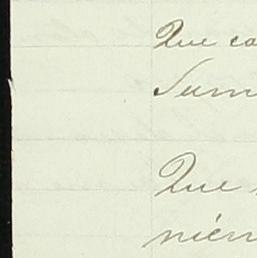 Que ca
Sum
Que
nien